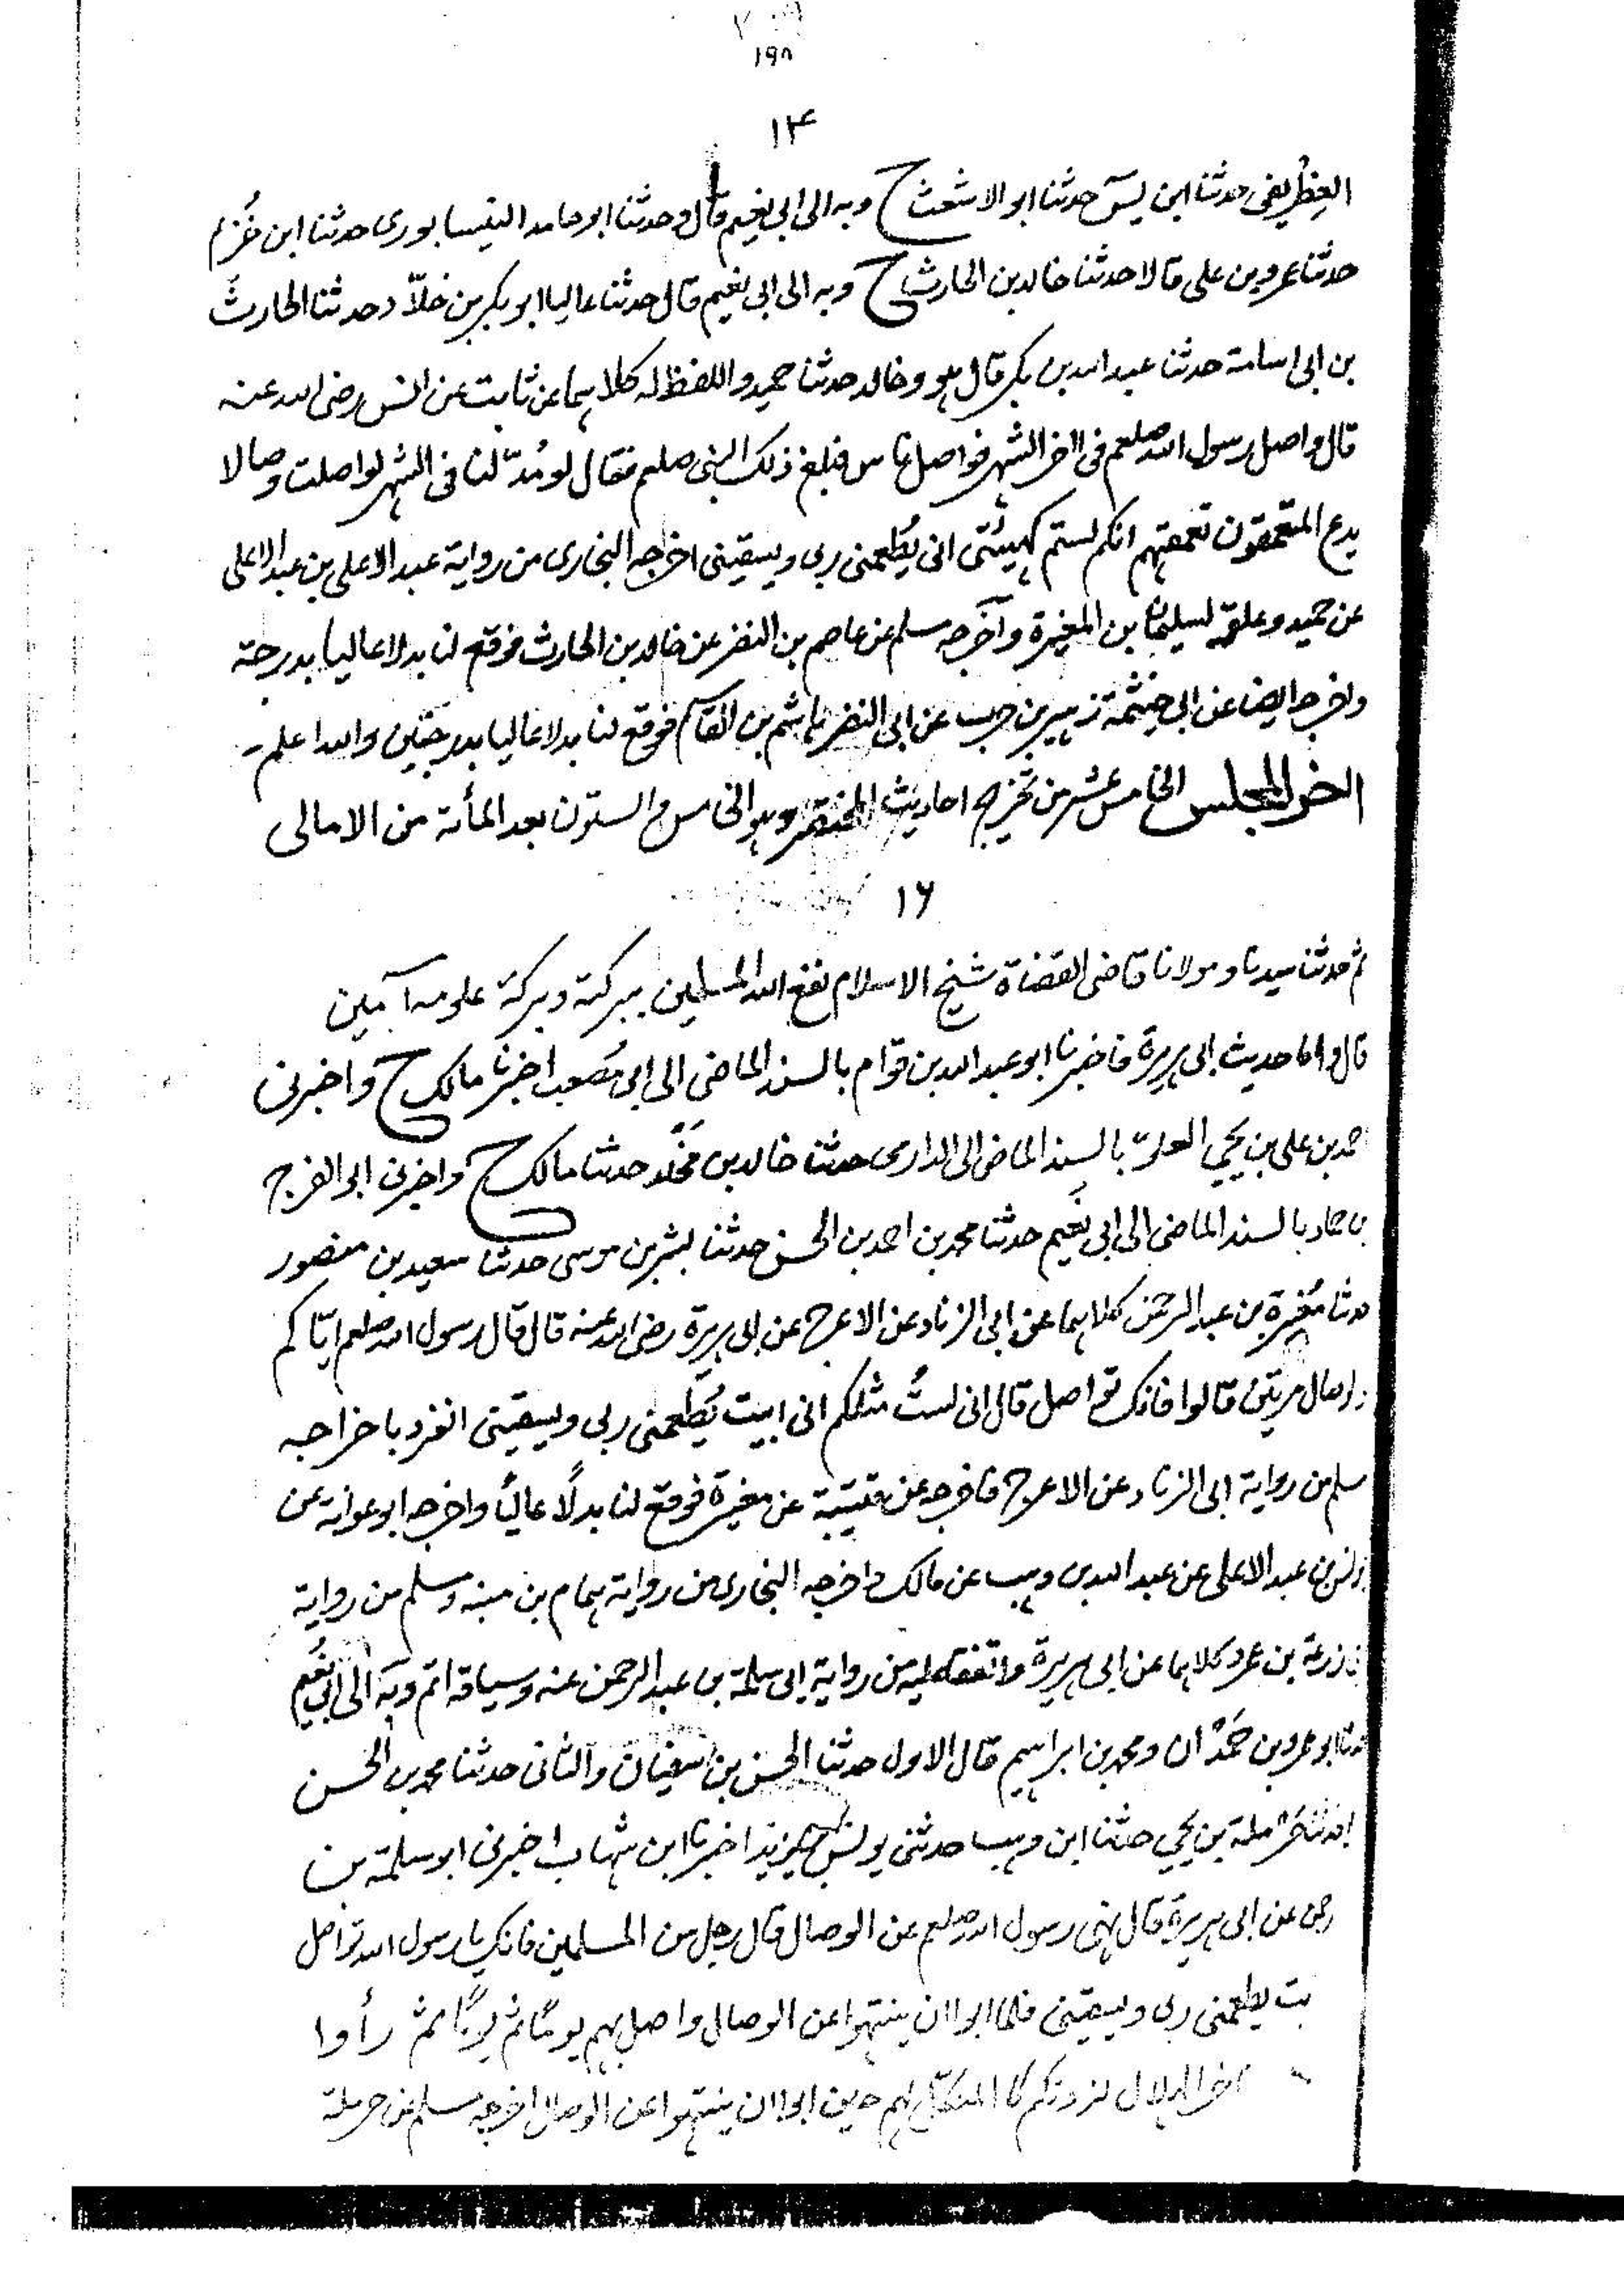 ١٩٨
١٤
الغِطْريفى حدثنا ابن يٰسٓ حدثنا ابو الاشعث ح وبه الى ابى نعيم قال وحدثنا ابو حامد النيسابورى حدثنا ابن خُزيم
حدثنا عمرو بن على قالا حدثنا خالد بن الحارث ح وبه الى ابى نعيم قال حدثنا عاليا ابو بكر بن خلّاد حدثنا الحارث
بن ابى اسامة حدثنا عبد الله بن بكر قال هو وخالد حدثنا حميد واللفظ له كلاهما عن ثابت عن انس رضى الله عنه
قال واصل رسول الله صلعم فى اخر الشهر فواصل ناس فبلغ ذلك النبى صلعم فقال لو مُدّ لنا فى الشهر لواصلت وصالا
يدع المتعمقون تعمقهم انكم لستم كهيئتى انى يُطعمنى ربى ويسقينى اخرجه البخارى من رواية عبد الاعلى بن عبد الاعلى
عن حميد وعلقه لسليمان بن المغيرة وآخرجه مسلم عن عاصم بن النضر عن خالد بن الحارث فوقع لنا بدلا عاليا بدرجة
واخرجه ايضا عن ابى خيثمة زهير بن حرب عن ابى النضر هاشم بن القاسم فوقع لنا بدلا عاليا بدرجتين والله اعلم
اخر المجلس الخامس عشر من تخريج احاديث المختصر وهو الخامس والستون بعد المأئة من الامالى
١٦
ثم حدثنا سيدنا ومولانا قاضى القضاة شيخ الاسلام نفع الله المسلمين ببركته وبركة علومه آمين
قال واما حديث ابى هريرة فاخبرنا ابو عبد الله بن قوام بالسند الماضى الى ابى مُصعب اخبرنا مالك ح واخبرنى
احمد بن على بن يحيي بالسند الماضى الى الدارمى حدثنا خالد بن مَخْلَد حدثنا مالك ح واخبرنى ابو الفرج
بن حماد بالسند الماضى الى ابى نُعيم حدثنا محمد بن احمد بن الحسن حدثنا بشر بن موسى حدثنا سعيد بن منصور
حدثنا مُغيرة بن عبد الرحمن كلاهما عن ابى الزناد عن الاعرج عن ابى هريرة رضى الله عنه قال قال رسول الله صلعم ايّاكم
والوصال مرتين قالوا فانك تواصل قال انى لستُ مثلكم انى ابيت يُطعمنى ربى ويسقينى انفرد باخراجه
مسلم من رواية ابى الزناد عن الاعرج فاخرجه عن قتيبة عن مغيرة فوقع لنا بدلًا عاليًا واخرجه ابو عوانة عن
يونس بن عبد الاعلى عن عبد الله بن وهب عن مالك واخرجه البخارى من رواية همام بن منبه ومسلم من رواية
زرعة بن عمرو كلاهما عن ابى هريرة واتفقا عليه من رواية ابى سلمة بن عبد الرحمن عنه وسياقه اتم وبه الى ابى نُعيم
حدثنا ابو عمرو بن حَمْدان ومحمد بن ابراهيم قال الاول حدثنا الحسن بن سفيان والثانى حدثنا محمد بن الحسن
حدثنا حَرْملة بن يحيي حدثنا ابن وهب حدثنى يونس بن يزيد اخبرنا ابن شهاب اخبرنى ابو سلمة بن
عن ابى هريرة قال نهى رسول الله صلعم عن الوصال قال رجل من المسلمين فانك يا رسول الله تواصل
يطعمنى ربى ويسقينى فلما ابوا ان ينتهوا عن الوصال واصل بهم يومًا ثم يومًا ثم رأوا
الهلال لزدتكم كالمنكّل لهم حين ابوا ان ينتهوا عن الوصال اخرجه مسلم عن حرملة